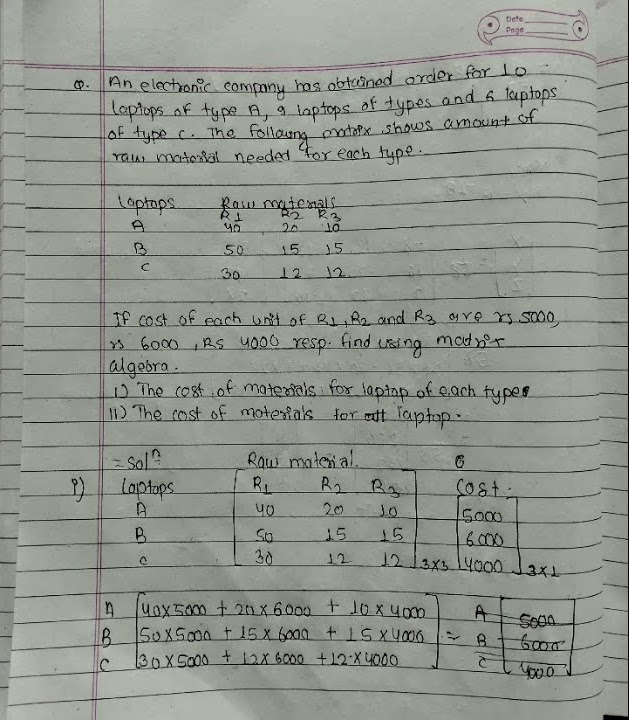 Date
Page
Q. An electronic company has obtained order for 10
laptops of type A, 9 laptops of types and 6 laptops
of type C. The following matrix shows amount of
raw material needed for each type.
Laptops Raw materials
R1 R2 R3
A 40 20 10
B 50 15 15
C 30 12 12
If cost of each unit of R1, R2 and R3 are rs 5000,
rs 6000, RS 4000 resp. find using matrix
algebra.
i) The cost of materials for laptop of each type
II) The cost of materials for all laptop.
= Solⁿ Raw material.
i) Laptops R1 R2 R3 Cost.
A 40 20 10 5000
B 50 15 15 6000
C 30 12 12 3x3 4000 3x1
A 40x5000 + 20x6000 + 10x4000 A 5000
B 50x5000 + 15x6000 + 15x4000 = B 6000
C 30x5000 + 12x6000 + 12x4000 C 4000